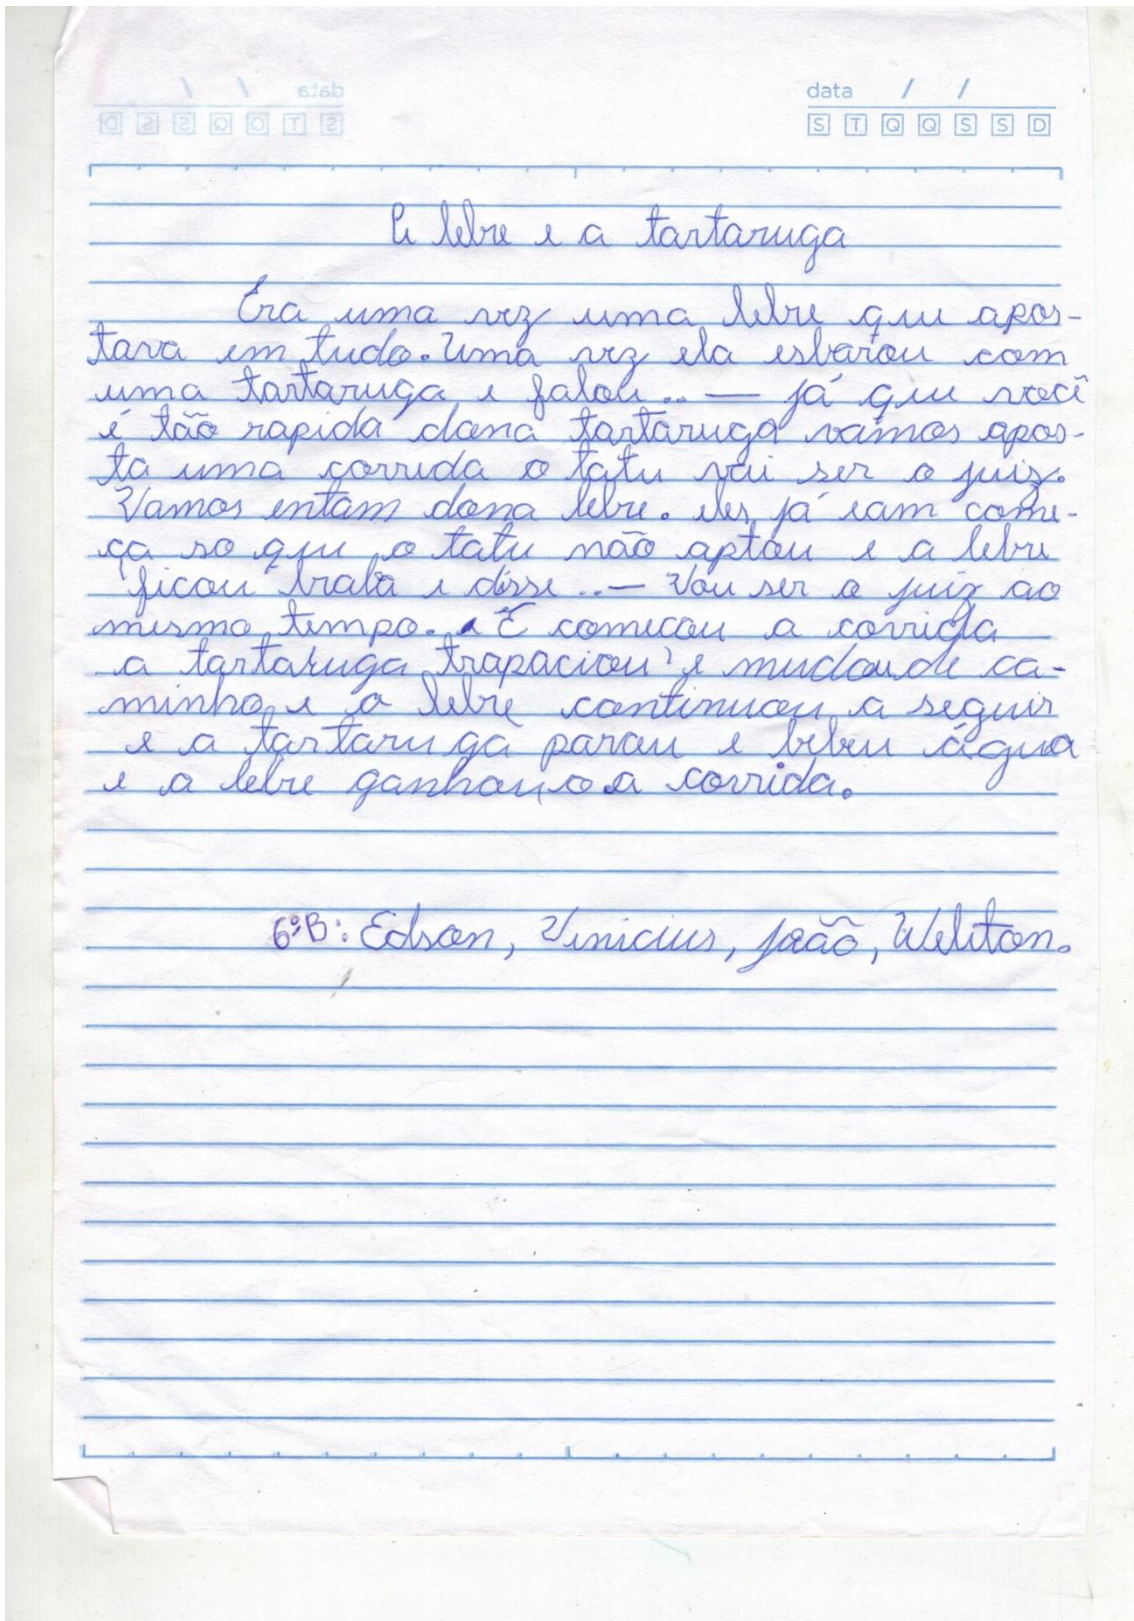 data / /
S T Q Q S S D
A lebre e a tartaruga
Era uma vez uma lebre que apos-
tava em tudo. Uma vez ela esbarou com
uma tartaruga e falou .. — já que você
é tão rapida dona tartaruga vamos apos-
ta uma corrida o tatu vai ser o juiz.
Vamos entam dona lebre. eles já iam come-
ça so que o tatu não aptou e a lebre
ficou braba e disse .. — Vou ser o juiz ao
mesmo tempo. E comecou a corrida
a tartaruga trapaciou e mudou de ca-
minho e a lebre continuou a seguir
e a tartaruga parou e bebeu água
e a lebre ganhou a corrida.
6ºB: Edson, Vinicius, João, Weliton.